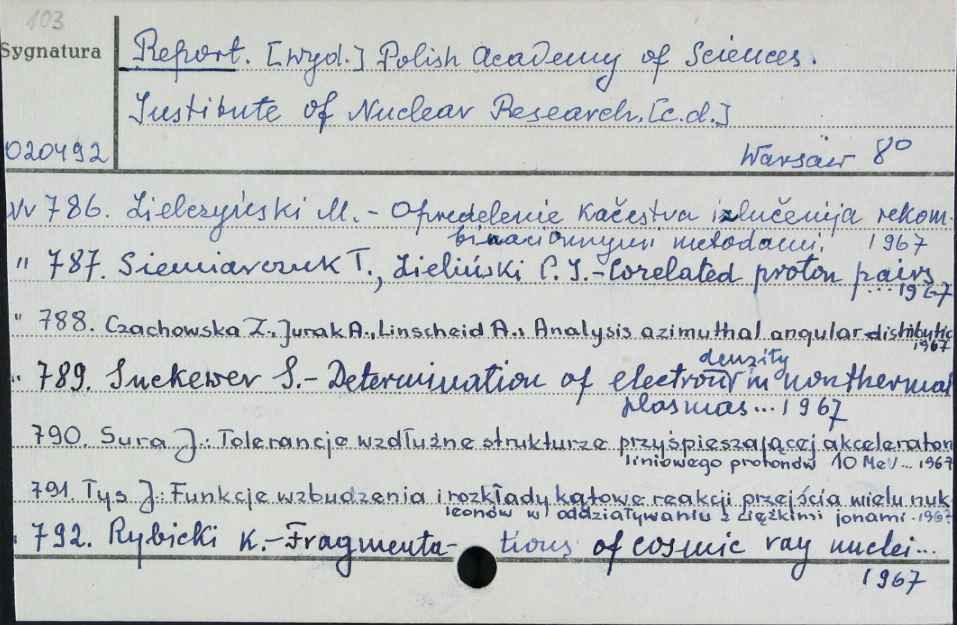 103
Sygnatura
Report. [wyd.] Polish Academy of Sciences.
Institute of Nuclear Research. [c.d.]
020492
Warsaw 8°
Nr 786. Zielczyński M. - Opredelenie kačestva izlučenija rekom-
binacionnymi metodami. 1967
" 787. Siemiarczuk T., Zieliński P. I. - Corelated proton pairs
... 1967
" 788. Czachowska Z., Jurak A., Linscheid A.: Analysis azimuthal angular distributio
1967
density
" 789. Suckewer S. - Determination of electrons in nonthermal
plasmas... 1967
790. Sura J.: Tolerancje wzdłużne strukturze przyśpieszającej akceleraton
liniowego protonów 10 MeV... 1967
791. Tys J.: Funkcje wzbudzenia i rozkłady kątowe reakcji przejścia wielu nuk
leonów w oddziaływaniu z ciężkimi jonami. 1967
" 792. Rybicki K. - Fragmenta- tions of cosmic ray nuclei...
1967